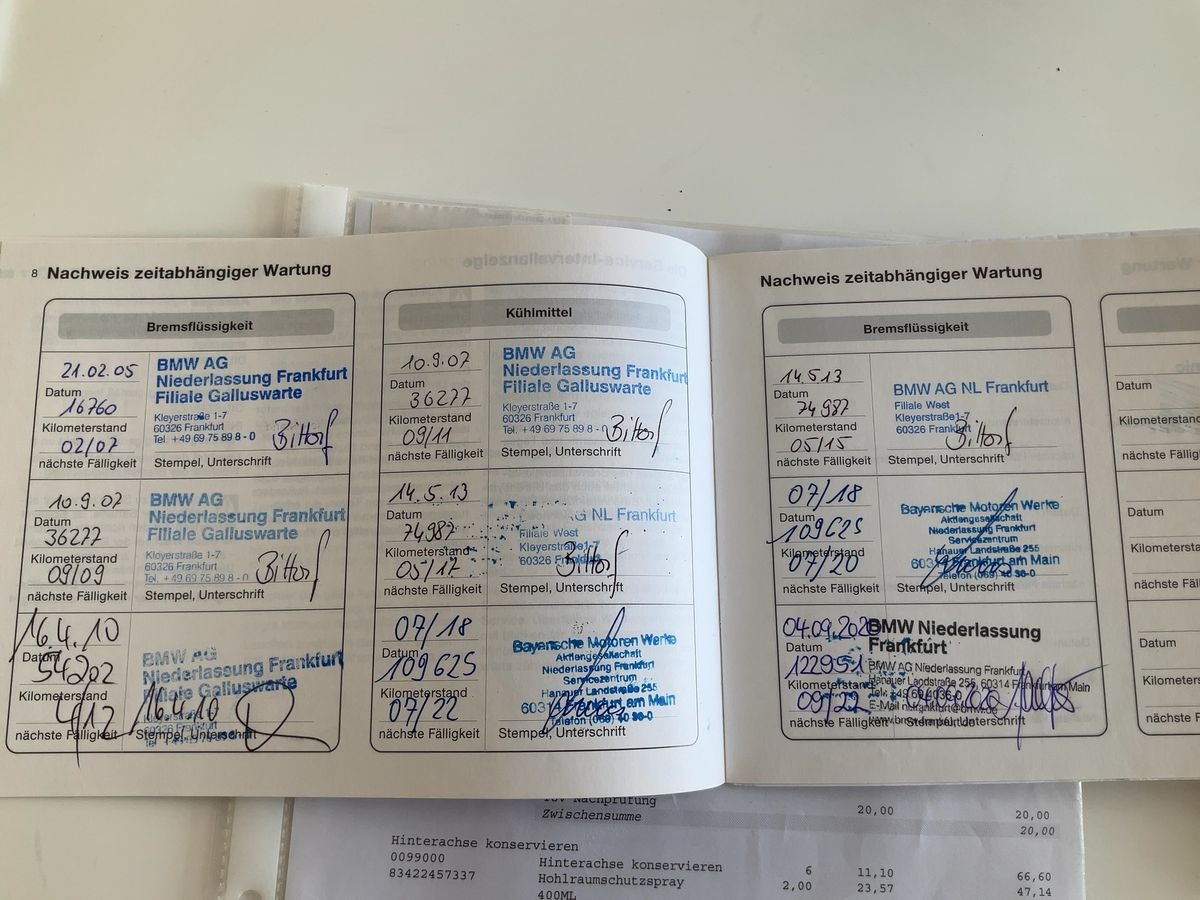 8 Nachweis zeitabhängiger Wartung
Bremsflüssigkeit
21.02.05
Datum
16760
Kilometerstand
02/07
nächste Fälligkeit
BMW AG
Niederlassung Frankfurt
Filiale Galluswarte
Kleyerstraße 1-7
60326 Frankfurt
Tel. +49 69 75 89 8 - 0
Bittorf
Stempel, Unterschrift
10.9.07
Datum
36277
Kilometerstand
09/09
nächste Fälligkeit
BMW AG
Niederlassung Frankfurt
Filiale Galluswarte
Kleyerstraße 1-7
60326 Frankfurt
Tel. +49 69 75 89 8 - 0
Bittorf
Stempel, Unterschrift
16.4.10
Datum
54202
Kilometerstand
4/12
nächste Fälligkeit
BMW AG
Niederlassung Frankfurt
Filiale Galluswarte
16.4.10
Stempel, Unterschrift
Kühlmittel
10.9.07
Datum
36277
Kilometerstand
09/11
nächste Fälligkeit
BMW AG
Niederlassung Frankfurt
Filiale Galluswarte
Kleyerstraße 1-7
60326 Frankfurt
Tel. +49 69 75 89 8 - 0
Bittorf
Stempel, Unterschrift
14.5.13
Datum
74987
Kilometerstand
05/17
nächste Fälligkeit
AG NL Frankfurt
Filiale West
Kleyerstraße1-7
60326 Frankfurt
Bittorf
Stempel, Unterschrift
07/18
Datum
109625
Kilometerstand
07/22
nächste Fälligkeit
Bayerische Motoren Werke
Aktiengesellschaft
Niederlassung Frankfurt
Servicezentrum
Hanauer Landstraße 255
60314 Frankfurt am Main
Telefon (069) 40 36-0
Stempel, Unterschrift
Nachweis zeitabhängiger Wartung
Bremsflüssigkeit
14.5.13
Datum
74987
Kilometerstand
05/15
nächste Fälligkeit
BMW AG NL Frankfurt
Filiale West
Kleyerstraße1-7
60326 Frankfurt
Bittorf
Stempel, Unterschrift
07/18
Datum
109625
Kilometerstand
07/20
nächste Fälligkeit
Bayerische Motoren Werke
Aktiengesellschaft
Niederlassung Frankfurt
Servicezentrum
Hanauer Landstraße 255
60314 Frankfurt am Main
Telefon (069) 40 36-0
Stempel, Unterschrift
04.09.2020
Datum
122951
Kilometerstand
09/22
nächste Fälligkeit
BMW Niederlassung
Frankfurt
BMW AG Niederlassung Frankfurt
Hanauer Landstraße 255, 60314 Frankfurt am Main
Stempel, Unterschrift
Datum
Kilometersta
nächste Fälli
Datum
Kilometersta
nächste Fälli
Datum
Kilometers
nächste Fäll
TÜV Nachprüfung
20,00 20,00
Zwischensumme 20,00
Hinterachse konservieren
0099000 Hinterachse konservieren 6 11,10 66,60
83422457337 Hohlraumschutzspray 2,00 23,57 47,14
400ML